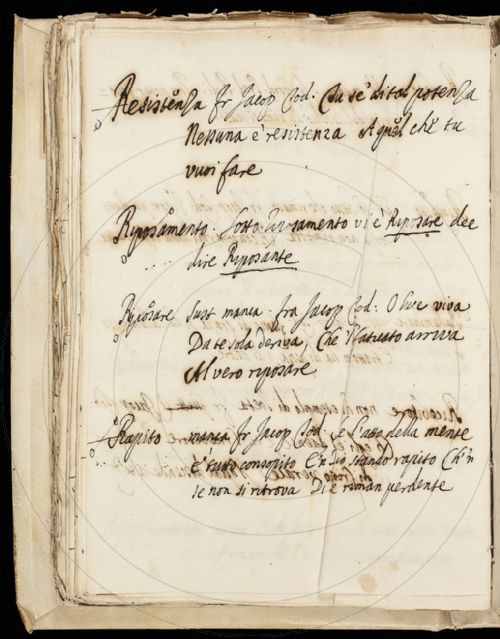 Resistenza Fr Jacop Tod. Tu se' di tal potenza
Nessuna è resistenza A quel che tu
vuoi fare
Riposamento. Sotto Riposamento vi è Riposare dee
dire Riposante
Riposare Sust manca. fra Jacop Tod: O luce viva
Da te sola deriva, Che l'attuato arriva
Al vero riposare
Rapito manca Fr Jacop Tod. e l'atto della mente
è tutto consopito E'n Dio stando rapito Ch'n
se non si ritrova Di è riman perdente